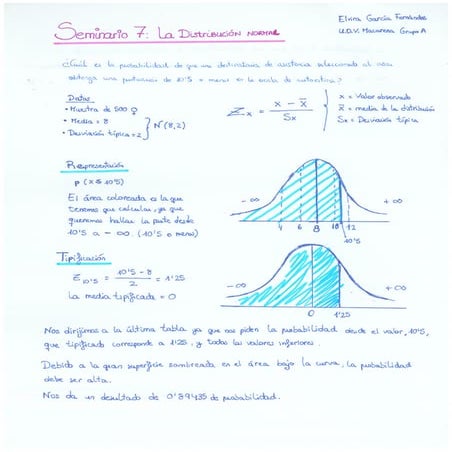 Elvira García Fernández
Seminario 7: La Distribución normal
U.D.V. Macarena Grupo A
¿Cuál es la probabilidad de que un derivatario de autoestima seleccionado al azar
obtenga una puntuación de 10'5 o menos en la escala de autoestima?
Datos
• Muestra de 500 ♀
• Media = 8
• Desviación típica = 2
N (8,2)
Zx = x - x̄ / Sx
x = Valor observado
x̄ = media de la distribución
Sx = Desviación típica
Representación
p (x ≤ 10'5)
El área coloreada es la que
tenemos que calcular, ya que
queremos hallar la parte desde
10'5 a - ∞. (10'5 o menos)
- ∞
+ ∞
4 6 8 10 12
10'5
Tipificación
Z10'5 = 10'5 - 8 / 2 = 1'25
La media tipificada = 0
- ∞
+ ∞
0 1'25
Nos dirijimos a la última tabla ya que nos piden la probabilidad desde el valor, 10'5,
que tipificado corresponde a 1'25, y todos los valores inferiores.
Debido a la gran superficie sombreada en el área bajo la curva, la probabilidad
debe ser alta.
Nos da un resultado de 0'89435 de probabilidad.